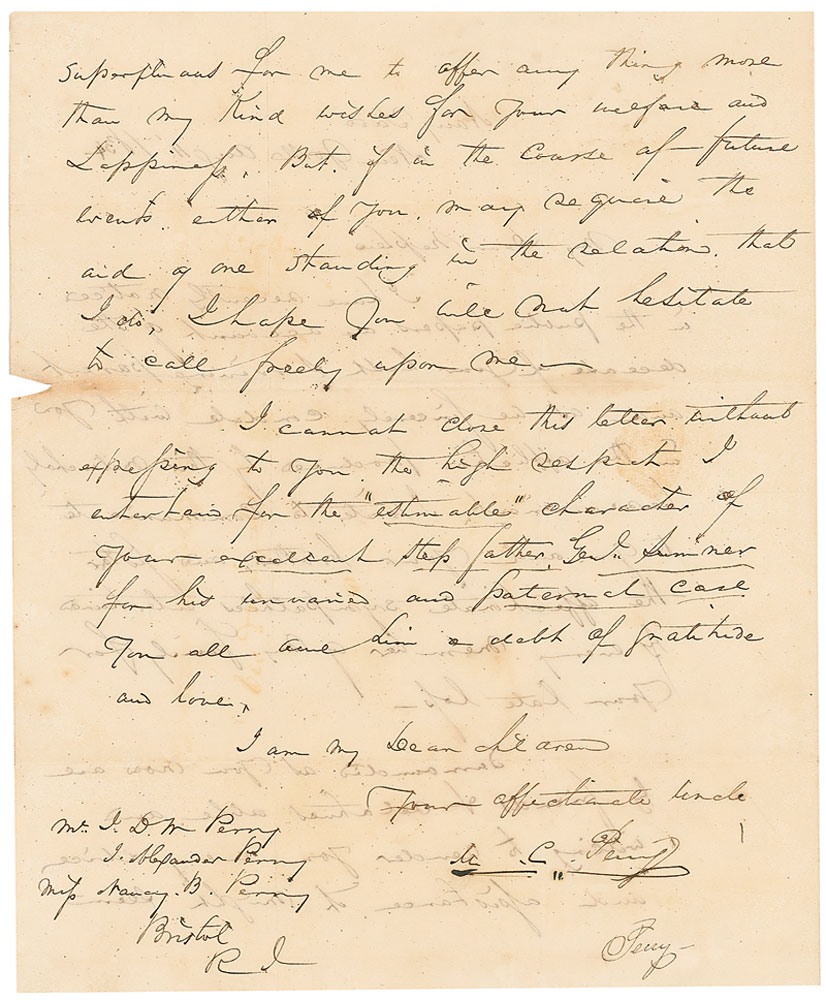 superfluous for me to offer any thing more
than my kind wishes for your welfare and
happiness. But. if in the course of future
events. either of you. may require the
aid of one standing in the relation. that
I do, I hope you will not hesitate
to call freely upon me—
I cannot close this letter without
expressing to you the high respect I
entertain for the "estimable" character of
your excellent step father. Genl. Sumner
for his unvaried and paternal care
You all owe him a debt of gratitude
and love.
I am my Dear children
Your affectionate Uncle
M. C. Perry
Mr. J. D. W Perry
J. Alexander Perry
Miss Nancy. B. Perry
Bristol
R I
Perry